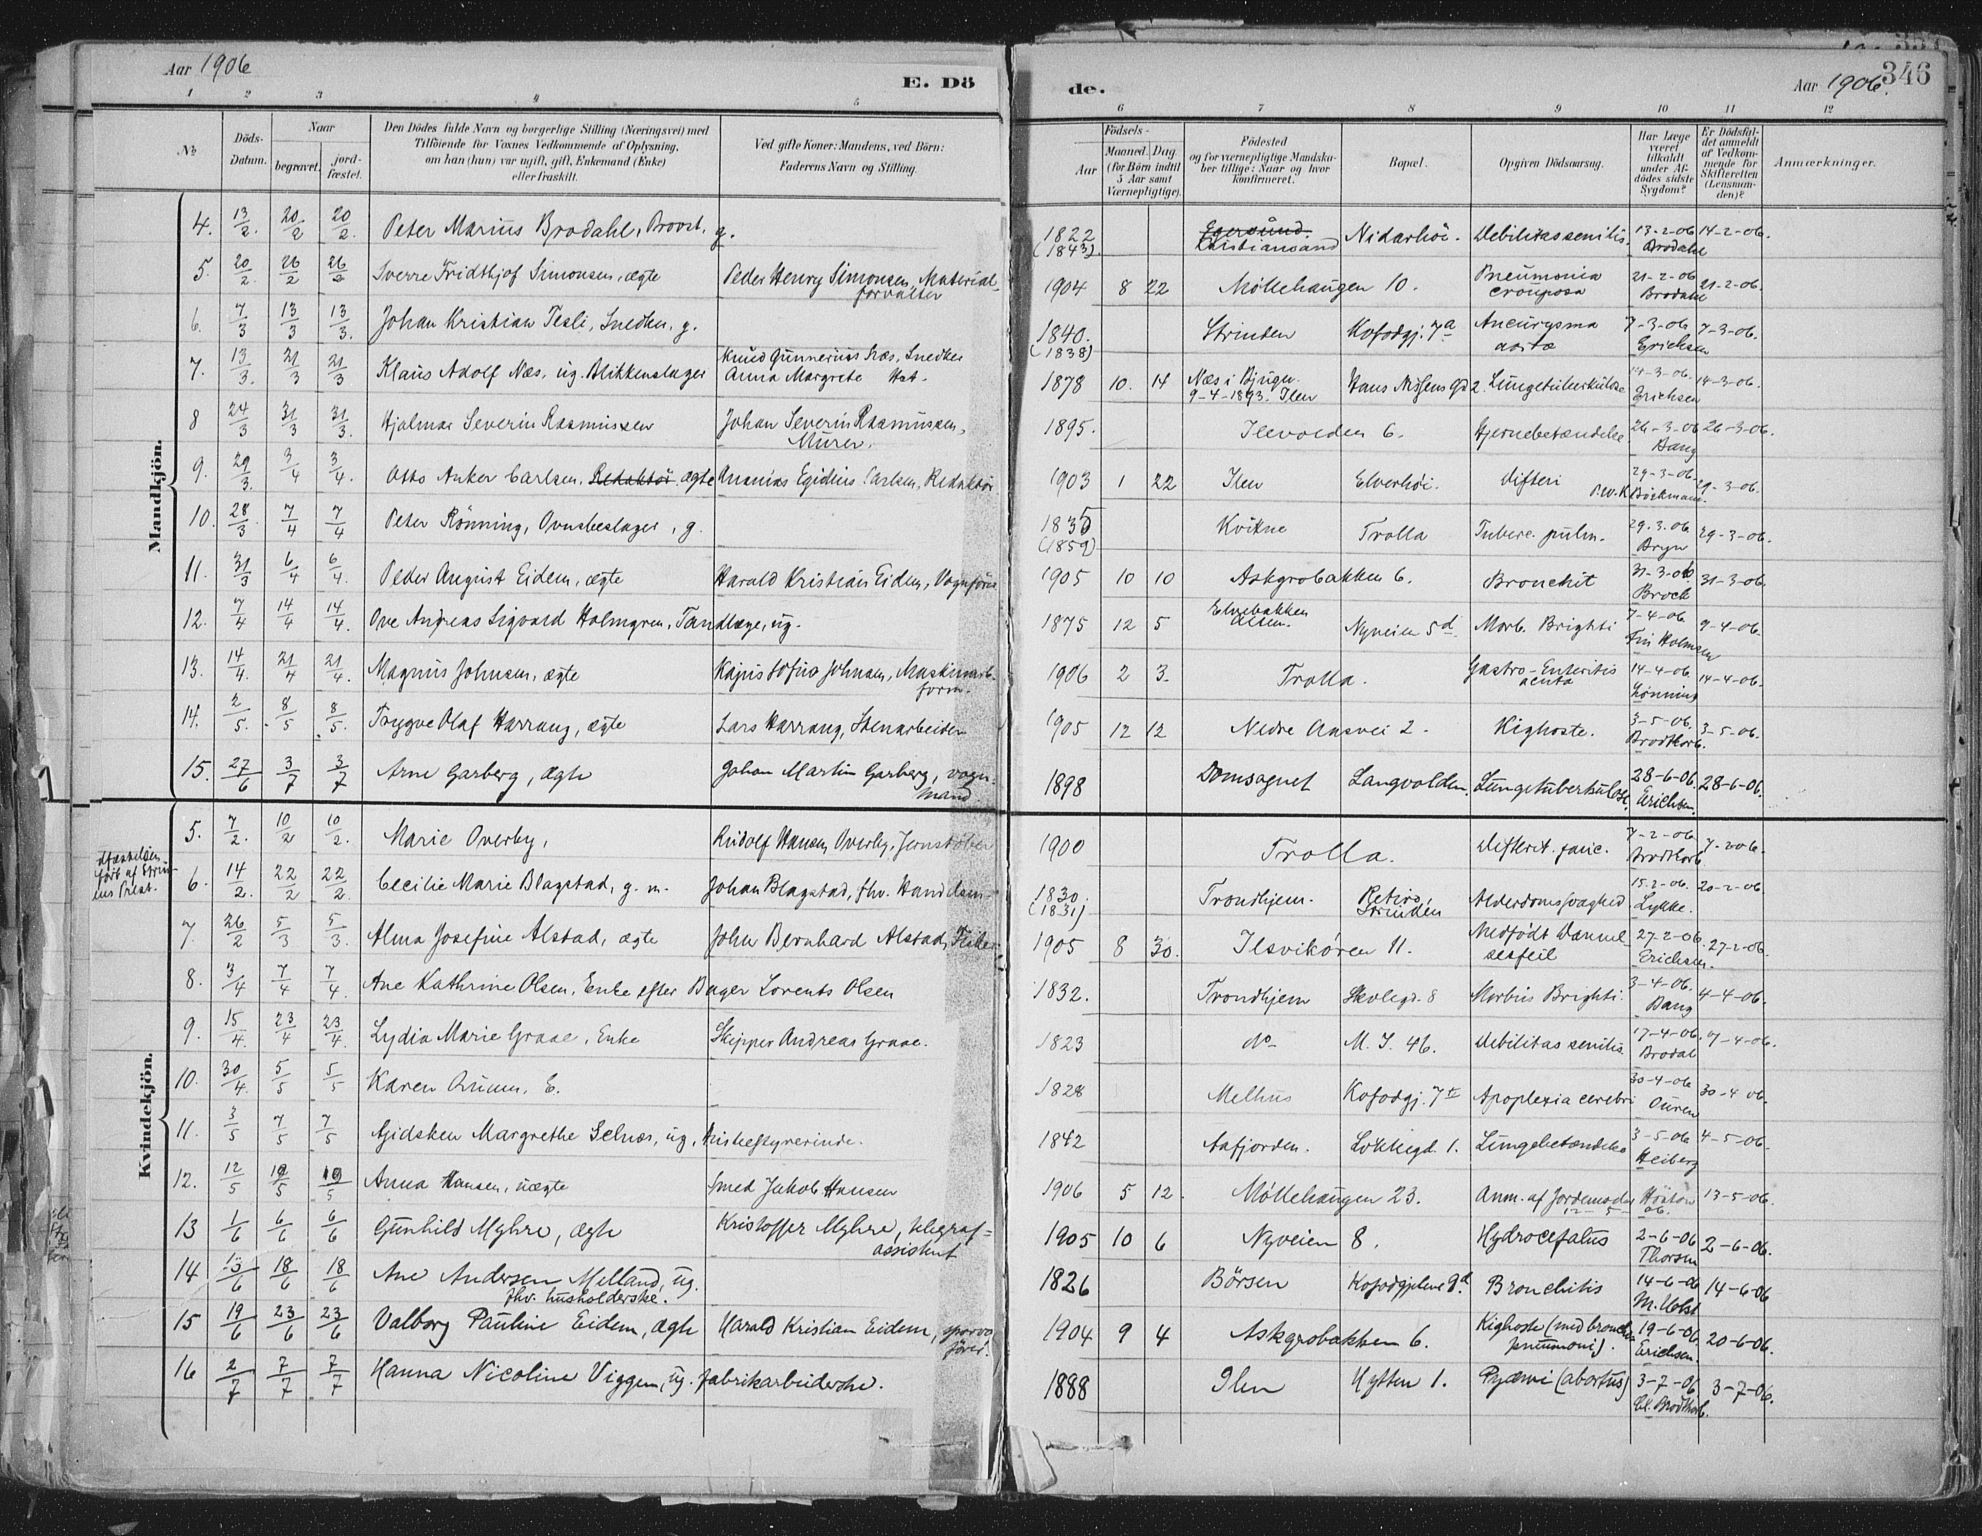 Aar 1906
E. Dö
de.
Aar 1906.
346
1 2 3 4 5 6 7 8 9 10 11 12
No
Döds-Datum.
Naar
begravet.
jord-fæstet.
Den Dödes fulde Navn og borgerlige Stilling (Næringsvei) med
Tilföiende for Voxnes Vedkommende af Oplysning,
om han (hun) var ugift, gift, Enkemand (Enke)
eller fraskilt.
Ved gifte Koner: Mandens, ved Börn:
Faderens Navn og Stilling.
Födsels-
Aar
Maaned. Dag
(for Börn indtil
5 Aar samt
Værnepligtige).
Födested
og for værnepligtige Mandska-
ber tillige: Naar og hvor
konfirmeret.
Bopæl.
Opgiven Dödsaarsag.
Har Læge
været
tilkaldt
under Af-
dödes sidste
Sygdom?
Er Dödsfal-
det anmeldt
af Vedkom-
mende for
Skifteretten
(Lensman-
den)?
Anmærkninger.
Mandkjön.
4. 13/2. 20/2 20/2. Peter Marius Brodahl, Provst, g. 1822 (1843). Egersund. Kristiansand Nidarhöi. Debilitas senilis. 13-2-06 Brodahl 14-2-06.
5. 20/2 26/2 26/2 Sverre Fridthjof Simonsen, ægte Peder Henry Simonsen, Material-forvalter 1904 8 22 Möllehaugen 10. Pneumonia crouposa 21-2-06 Brodahl 21-2-06.
6. 7/3 13/3 13/3. Johan Kristian Tesli, Snedker, g. 1840. (1838) Strinden Kofodgj. 7a Aneurysma aortæ 7-3-06 Erichsen 7-3-06.
7. 13/3. 21/3 21/3 Klaus Adolf Næs, ug. Blikkenslager Knud Gunnerius Næs, Snedker Anna Margrete 1878 10. 14 Næs i Bjugn. 9-4-1893. Ilen Hans Nissens Gd 2. Lungetuberkulose 14-3-06. Erichsen 14-3-06.
8 24/3 31/3 31/3. Hjalmar Severin Rasmussen Johan Severin Rasmussen, Murer. 1895. Ilevolden 6. Hjernebetændelse 26-3-06 Bang 26-3-06.
9. 29/3. 3/4 3/4. Otto Anker Carlsen, Redaktör ægte Ananias Egidius Carlsen, Redaktör 1903 1 22 Ilen Elverhöi. Difteri 29-3-06. Böckmann. 29-3-06.
10. 28/3 7/4 7/4 Peter Rönning, Ovnsbeslager, g. 1835 (1859) Kvikne Trolla Tuberc. pulm. 29.3.06 Bryn 29-3-06.
11. 31/3 6/4 6/4. Peder August Eidem, ægte Harald Kristian Eidem, Vognförer 1905 10 10 Askgrobakken 6. Bronchit 31-3-06 Brock 31-3-06.
12. 7/4 14/4 14/4. Ove Andreas Sigvard Holmgren, Tandlæge, ug. 1875 12 5 Elvebakken Alten. Nyveien 5d Morb. Brighti 7-4-06. Holmsen 9-4-06.
13. 14/4. 21/4 21/4. Magnus Johnsen, ægte Kajus Sofus Johnsen, Maskinarb. form. 1906 2 3. Trolla. Gastro-Enteritis acuta 14-4-06. Lönning 14-4-06.
14. 2/5. 8/5 8/5. Trygve Olaf Harrang, ægte Lars Harrang, Stenarbeider 1905 12 12 Nedre Aasvei 2. Kighoste. 3-5-06. Brodtkorb. 3-5-06.
15. 27/6 3/7 3/7 Arne Garberg, ægte Johan Martin Garberg, vogn-mand 1898 Domsognet Langvolden. Lungetuberkulose. 28-6-06 Erichsen 28-6-06.
Kvindekjön.
5. 7/2. 10/2 10/2. Marie Overby, Rudolf Hansen Overby, Jernstöber 1900 Trolla. Difterit. fauc. 7-2-06. Brodtkorb. 7-2-06.
6. 14/2. 22/2 22/2. Cecilie Marie Blagstad, g. m. Johan Blagstad, fhv. Handelsm. 1830. (1831) Trondhjem. Retiro, Strinden Alderdomssvaghed 15-2-06. Lykke. 20-2-06
7. 26/2 5/3 5/3. Alma Josefine Alstad, ægte John Bernhard Alstad, Fisker 1905 8 30. Ilsvikören 11. Medfödt Dannelsesfeil 27-2-06 Erichsen. 27-2-06.
8. 3/4 7/4 7/4. Ane Kathrine Olsen, Enke efter Bager Lorents Olsen 1832. Trondhjem Skolegd. 8 Morbus Brighti 3-4-06. Bang 4-4-06.
9. 15/4. 23/4 23/4. Lydia Marie Graae, Enke Skipper Andreas Graae. 1823 do M. I. 46. Debilitas senilis 17-4-06. Brodal 17-4-06.
10. 30/4. 5/5 5/5 Karen Quum, E. 1828 Melhus Kofodgj. 7 Apoplexia cerebri 30-4-06 Ouren 30-4 06.
11. 3/5 7/5 7/5 Margrethe Selnæs, ug, 1842 Aafjorden. Lökkegd. 1. Lungebetændelse 3-5-06 Heiberg 4-5-06.
12. 12/5 19/5 19/5 Anna Hansen, uægte Smed Jakob Hansen 1906 5 12. Möllehaugen 23. Anm. af Jordemoder 12-5-06. 13-5-06.
13 1/6 6/6 6/6 Gunhild Myhre, ægte Kristoffer Myhre, telegraf-assistent 1905 10 6 Nyveien 8. Hydrocefalus 2-6-06 Thorsen 2-6-06.
14 13/6 18/6 18/6 Ane Andersen Melland, ug. fhv. husholderske. 1826 Börsen Kofodgjelene 9d. Bronchitis 14-6-06 M. Holst 14-6-06
15 19/6 23/6 23/6 Valborg Pauline Eidem, ægte Harald Kristian Eidem, sporvo. förer. 1904 9 4 Askgrobakken 6. Kighoste (med broncho pneumoni). 19-6-06 Erichsen. 20-6-06.
16 2/7 7/7 7/7 Hanna Nicoline Viggen, ug. fabrikarbeiderske. 1888 Ilen Hytten 1. Pyæmi (abortus) 3-7-06 Cl. Brodtkorb. 3-7-06.